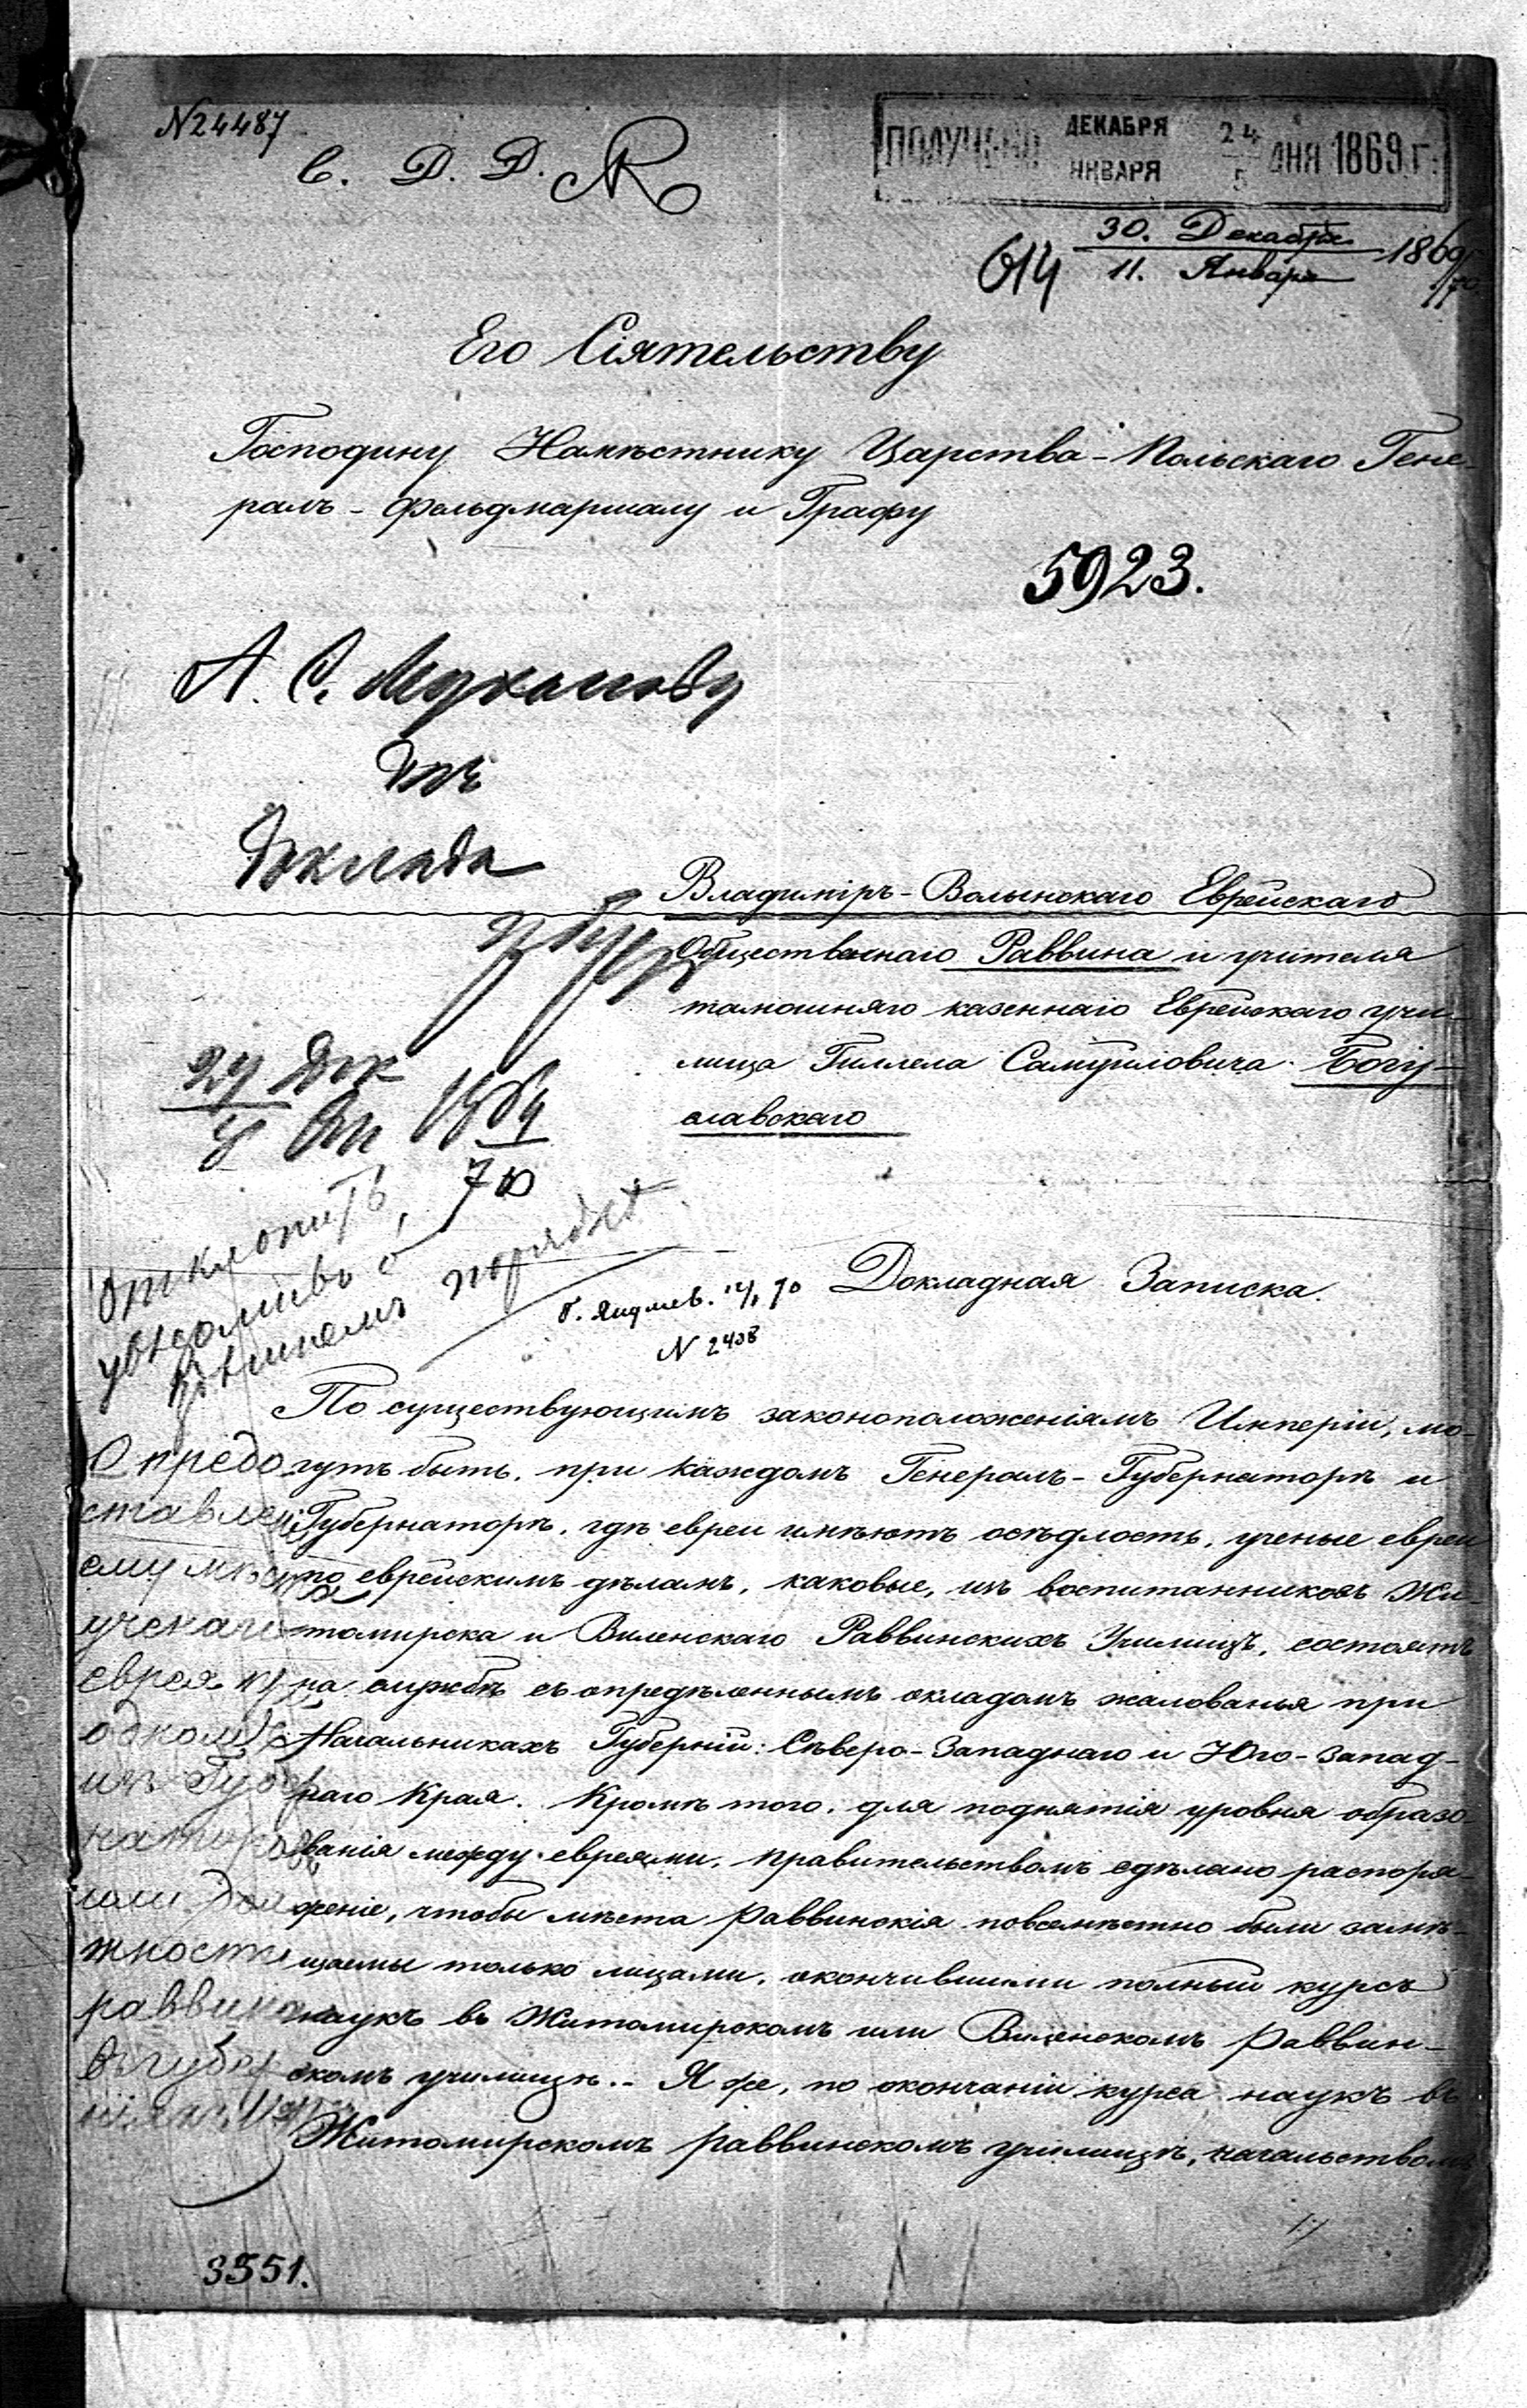 №24487
С. Д. Д.
ПОЛУЧЕНО ДЕКАБРЯ 24 ЯНВАРЯ 5 ДНЯ 1869 г.
614 30. Декабря 11. Января 1869/70
Его Сіятельству
Господину Намѣстнику Царства-Польскаго Гене-
ралъ-Фельдмаршалу и Графу
5923.
А. С.
для
доклада
Владимірѣ-Волынскаго Еврейскаго
Общественнаго Раввина и учителя
тамошняго казеннаго Еврейскаго учи-
лища Гиллела Самуиловича Богу-
славскаго
24 Дек
5 Ян 1869
70
Отклонить,
увѣдомивъ о
порядкѣ
Докладная Записка.
14/1 70
№ 2408
По существующимъ законоположеніямъ Имперіи, мо-
гутъ быть, при каждомъ Генералъ-Губернаторѣ и
Губернаторѣ, гдѣ евреи имѣютъ осѣдлость, ученые евреи
по еврейскимъ дѣламъ, каковые, изъ воспитанниковъ Жи-
томирска и Виленскаго Раввинскихъ Училищъ, состоятъ
на службѣ съ опредѣленнымъ окладомъ жалованья при
Начальникахъ Губерній: Сѣверо-Западнаго и Юго-Запад-
наго Края. Кромѣ того, для поднятія уровня образо-
ванія между евреями, правительствомъ сдѣлано распоря-
женіе, чтобы мѣста раввинскія повсемѣстно были замѣ-
щаемы только лицами, окончившими полный курсъ
наукъ въ Житомирскомъ или Виленскомъ Раввин-
скомъ училищѣ.- Я же, по окончаніи курса наукъ въ
Житомирскомъ раввинскомъ училищѣ, начальствомъ
О предо
ставленіи
ему мѣста
ученаго
еврея при
одномъ
изъ Губер
наторовъ
или дол
жности
раввина
въ губер
ніяхъ
3551.